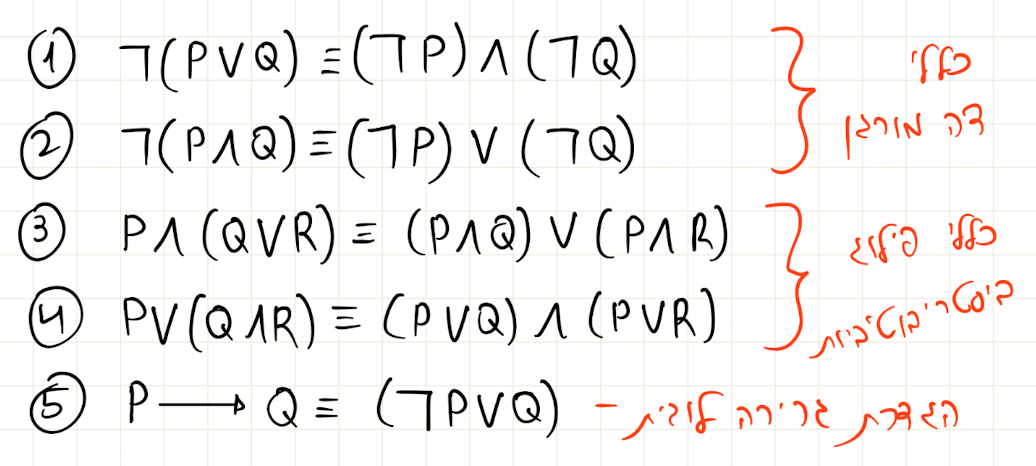 ① ¬(P∨Q) ≡ (¬P)∧(¬Q)
② ¬(P∧Q) ≡ (¬P)∨(¬Q)
כללי
דה מורגן
③ P∧(Q∨R) ≡ (P∧Q)∨(P∧R)
④ P∨(Q∧R) ≡ (P∨Q)∧(P∨R)
כללי פילוג
דיסטריבוטיביות
⑤ P → Q ≡ (¬P∨Q) – הגדרת גרירה לוגית